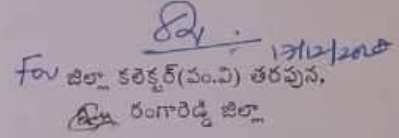 17/12/2018
For జిల్లా కలెక్టర్(పం.వి) తరపున,
రంగారెడ్డి జిల్లా